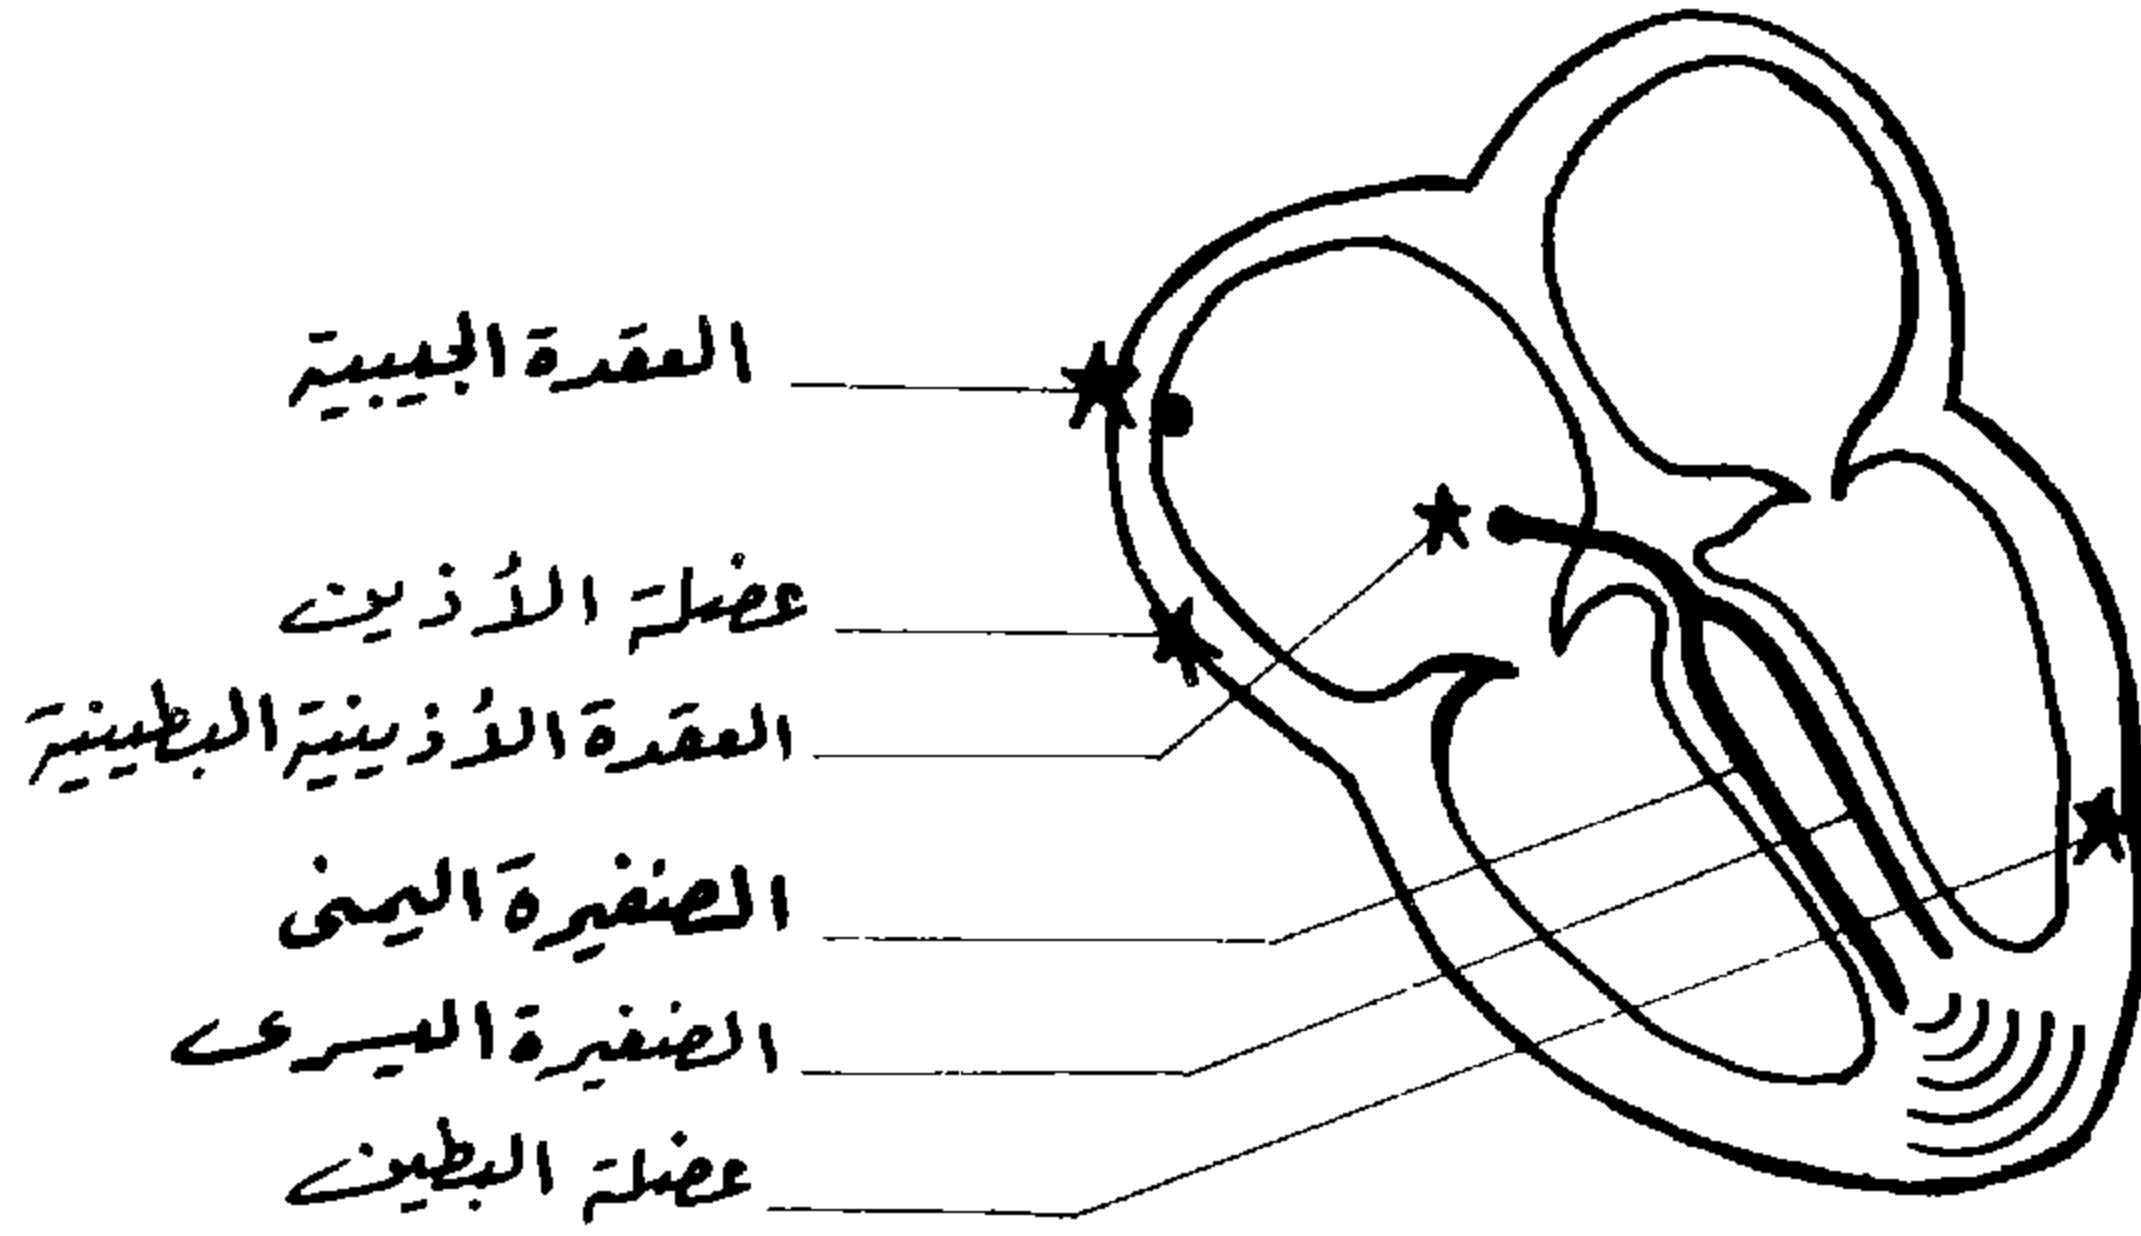 العقدة الجيبية
عضلة الأذين
العقدة الأذينية البطينية
الضفيرة اليمنى
الضفيرة اليسرى
عضلة البطين